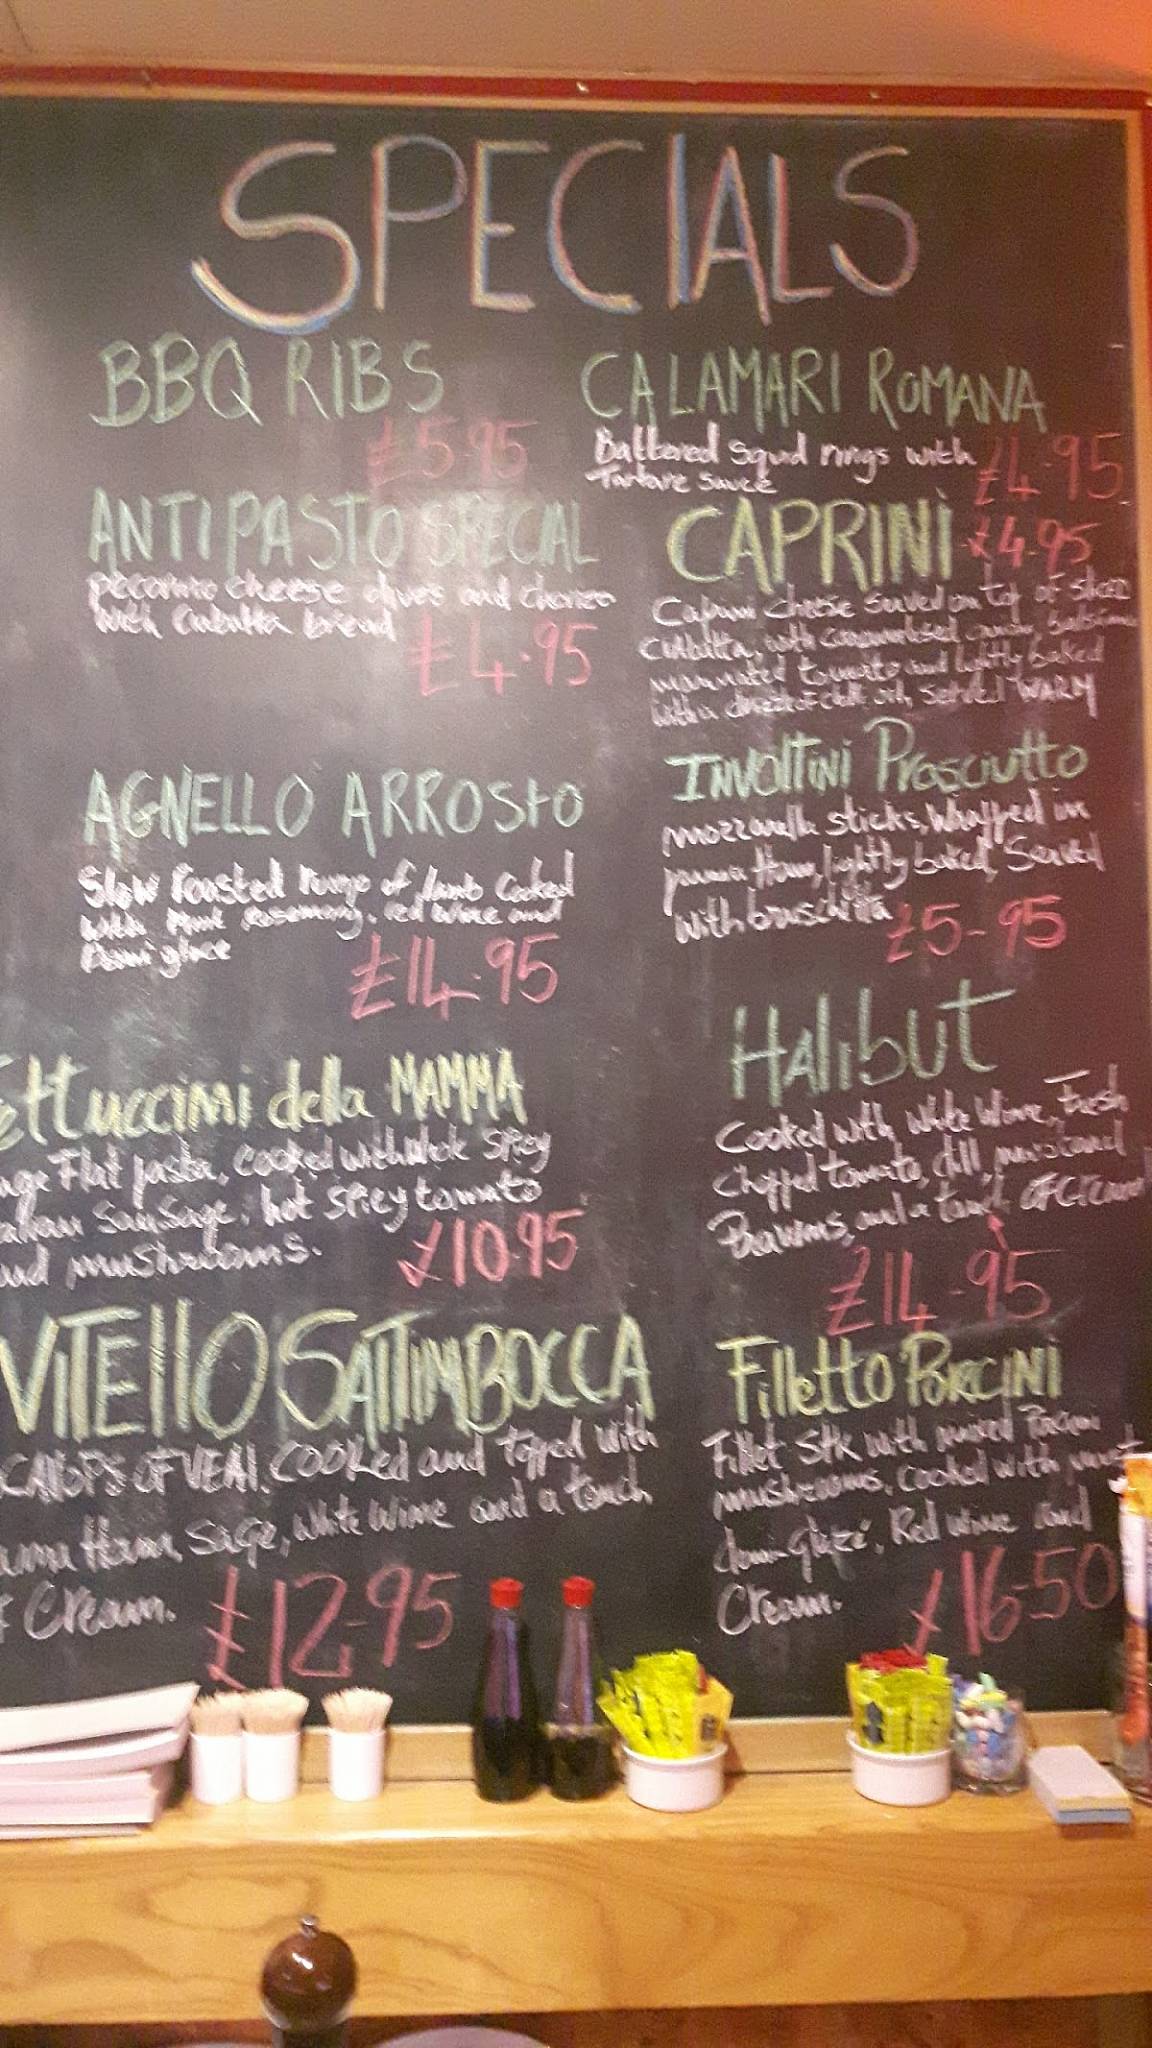 SPECIALS
BBQ RIBS
£5.95
ANTIPASTO SPECIAL
pecorino cheese olives and chorizo
with Ciabatta bread
£4.95
AGNELLO ARROSTO
Slow roasted rump of lamb cooked
with Mint Rosemary, red wine and
Demi glace
£14.95
ettuccimi della MAMMA
Flat pasta, cooked with spicy
Sausage, hot spicy tomato
mushrooms.
£10.95
VITELLO SATTIMBOCCA
OF VEAL. COOKED and topped with
Ham, Sage, white wine and a touch
Cream.
£12.95
CALAMARI ROMANA
Battered squid rings with
Tartare sauce
£4.95
CAPRINI £4.95
Caprini cheese served on top of sliced
Ciabatta, with caramelised
marinated tomato and lightly baked
with a drizzle of chilli oil, served WARM
INVOLTINI PROSCIUTTO
mozzarella sticks, wrapped in
parma Ham, lightly baked, Served
with bruschetta
£5-95
HALIBUT
Cooked with white wine, Fresh
chopped tomato, dill, mustard
Prawns, and a touch OF CREAM
£14.95
Filletto PORCINI
Fillet Stk with mixed Porcini
mushrooms, cooked with
demi-glaze, Red wine and
Cream.
£16-50